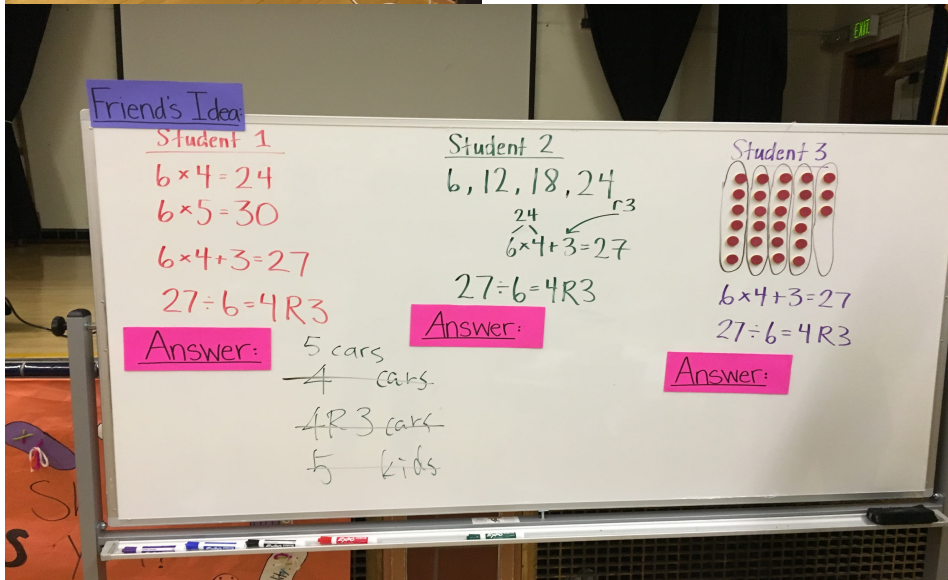 EXIT
Friend's Idea:
Student 1
6×4=24
6×5=30
6×4+3=27
27÷6=4R3
Answer:
5 cars
4 cars
4R3 cars
5 kids
Student 2
6, 12, 18, 24
24
r3
6×4+3=27
27÷6=4R3
Answer:
Student 3
6×4+3=27
27÷6=4R3
Answer:
EXPO